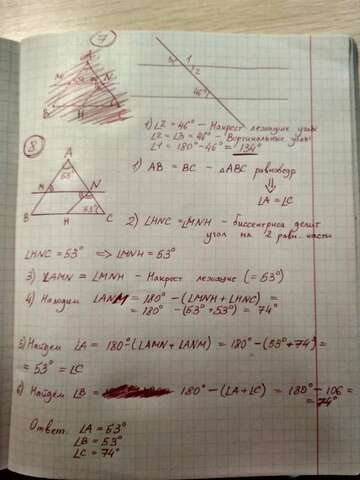 7
A
M
N
B
H
C
1
3
2
46°
1) ∠2 = 46° - Накрест лежащие углы
∠2 = ∠3 = 46° - Вертикальные углы
∠1 = 180° - 46° = 134°
8
A
53°
M
N
B
H
53°
C
1) AB = BC - △ABC равнобедр
⇓
∠A = ∠C
2) ∠HNC = ∠MNH - биссектриса делит
угол на 2 равн. части
∠HNC = 53° => ∠MNH = 53°
3) ∠AMN = ∠MNH - Накрест лежащие (= 53°)
4) Находим ∠ANM = 180° - (∠MNH + ∠HNC) =
= 180° - (53° + 53°) = 74°
5) Найдем ∠A = 180° (∠AMN + ∠ANM) = 180° - (53° + 74°) =
= 53° = ∠C
6) Найдем ∠B = 180° - (∠A + ∠C) = 180° - 106 =
= 74°
Ответ. ∠A = 53°
∠B = 53°
∠C = 74°